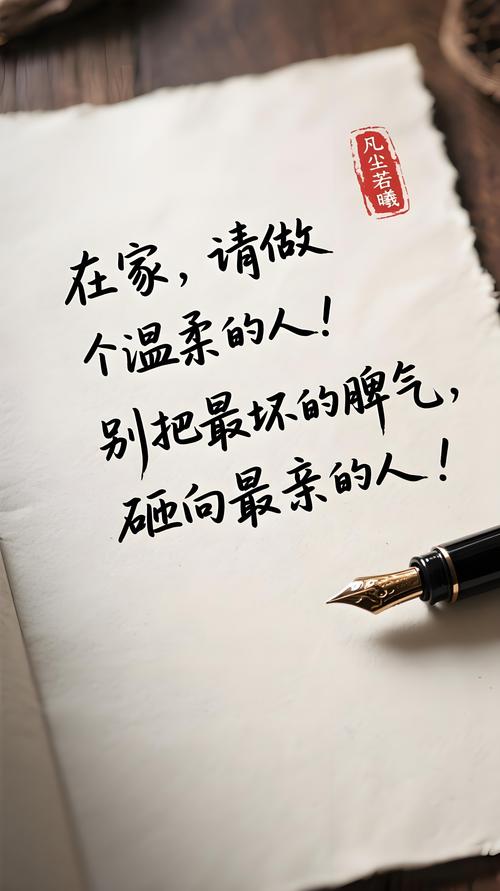 凡尘若曦
在家，请做
个温柔的人！
别把最坏的脾气，
砸向最亲的人！